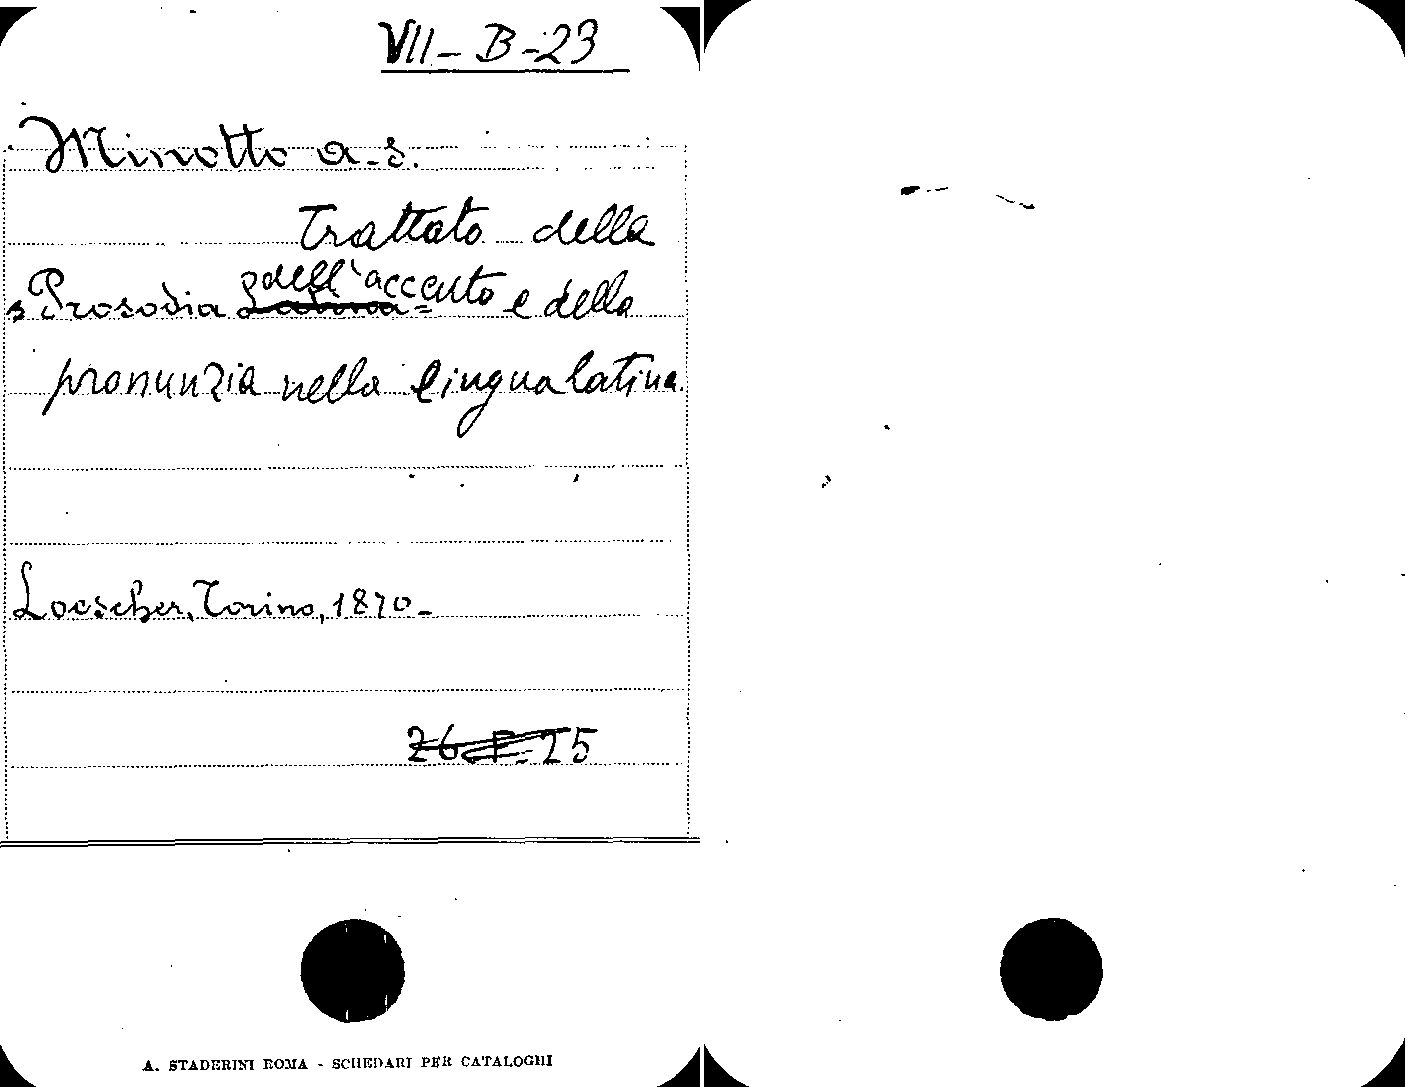 VII - B - 23
Minotto a. s.
Trattato della
Prosodia dell'accento e della
pronunzia nella lingua latina.
Loescher, Torino, 1870 -
A. STADERINI ROMA - SCHEDARI PER CATALOGHI